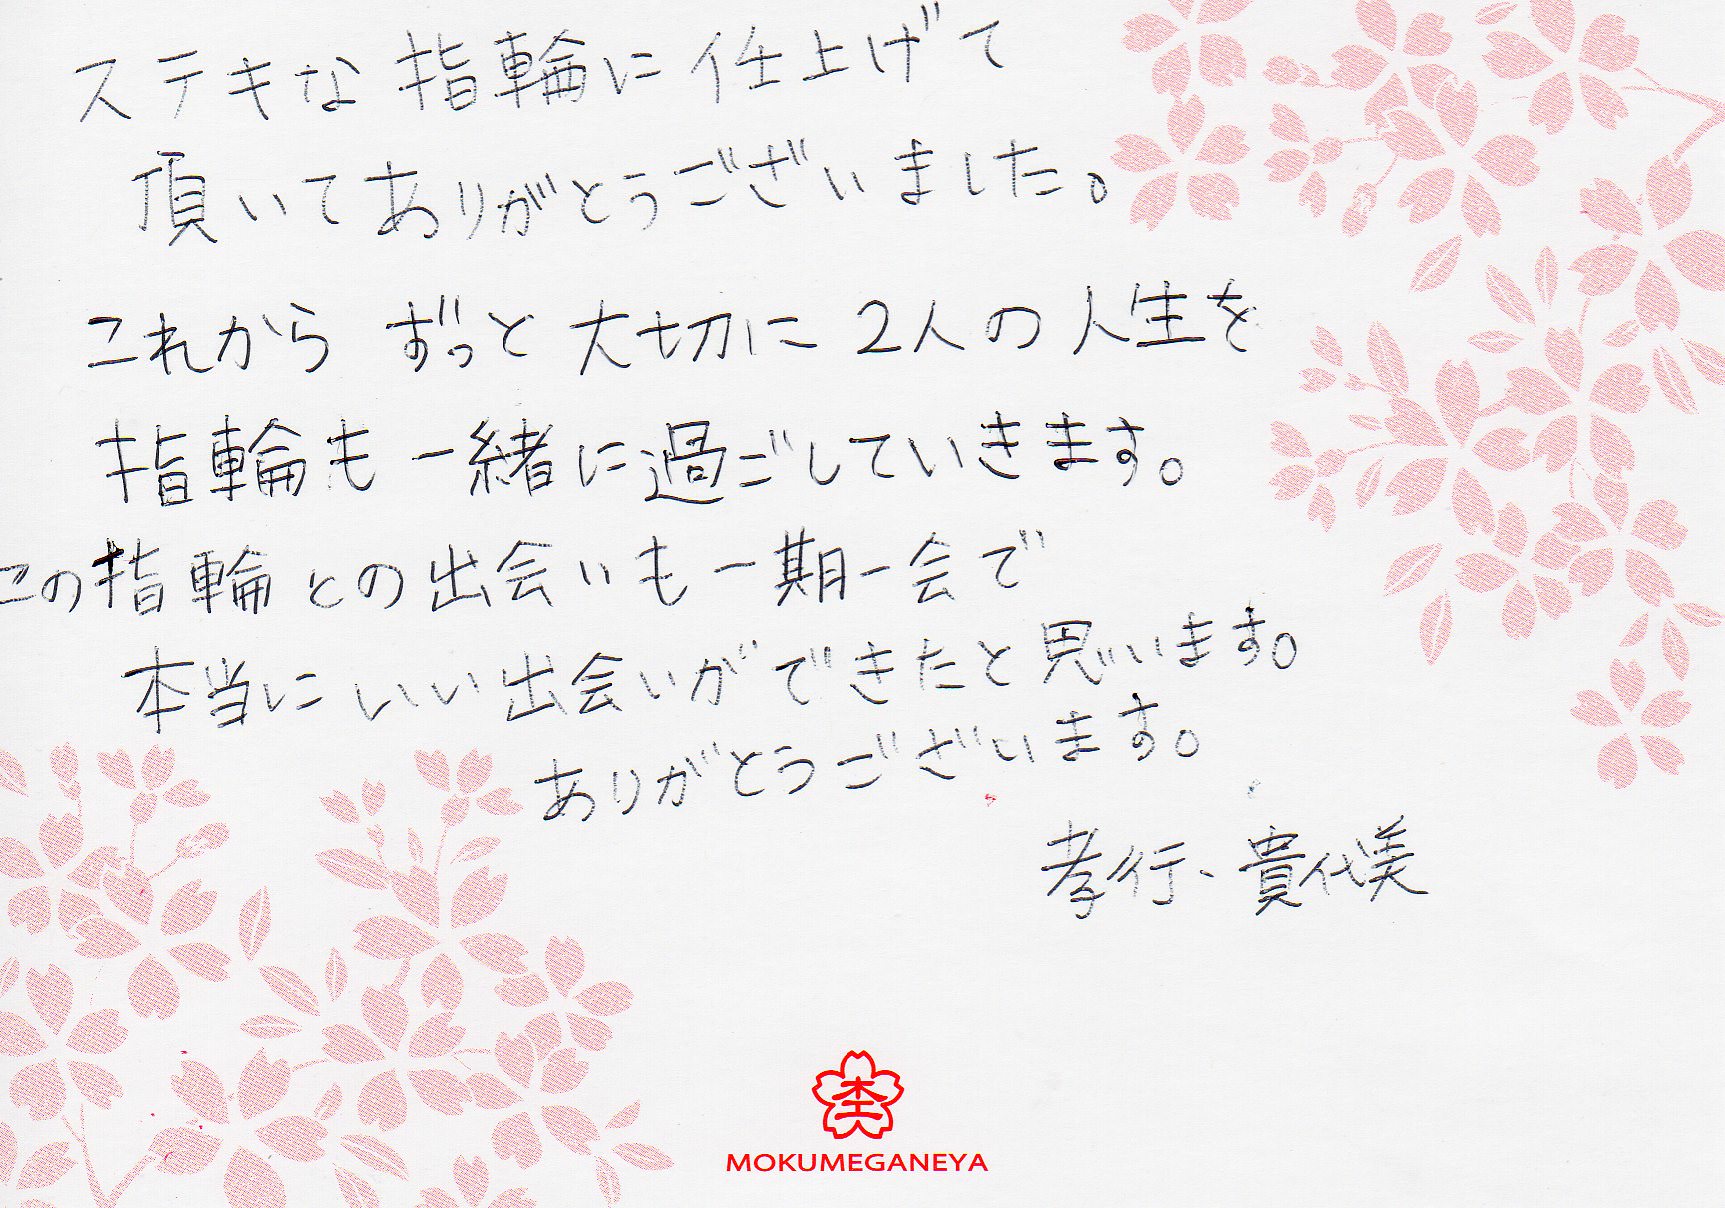 ステキな指輪に仕上げて
頂いてありがとうございました。
これから ずっと大切に2人の人生を
指輪も一緒に過ごしていきます。
この指輪との出会いも一期一会で
本当にいい出会いができたと思います。
ありがとうございます。
孝行、貴代美
杢
MOKUMEGANEYA